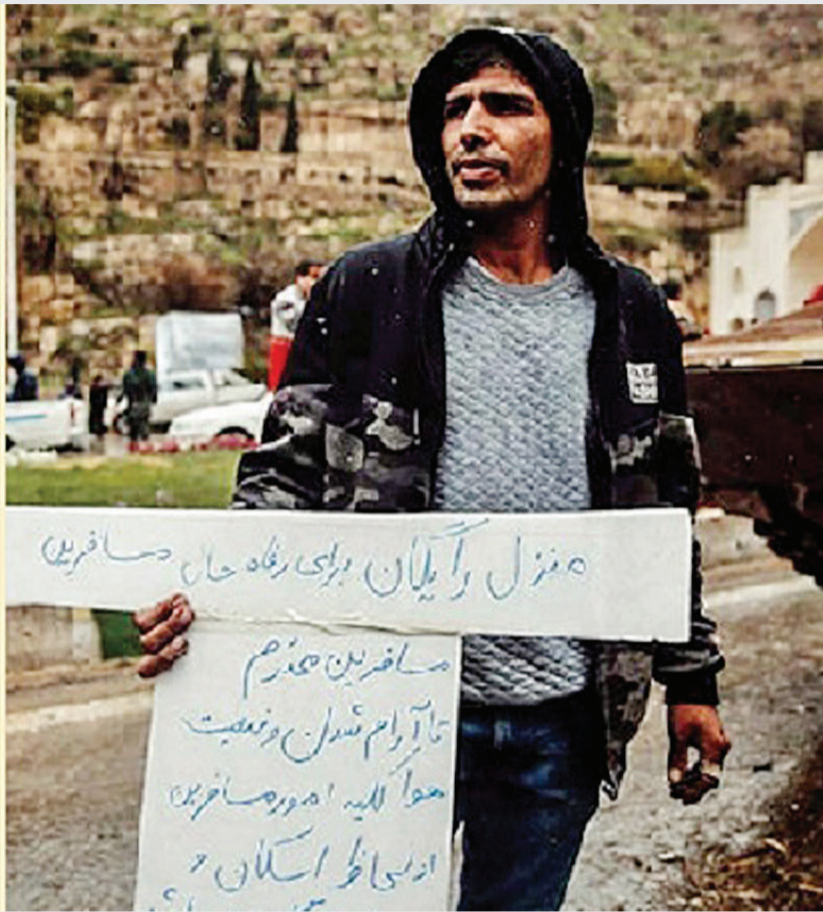 منزل رایگان برای رفاه حال مسافرین
مسافرین محترم
تا آرام شدن وضعیت
هوا کلیه امور مسافرین
از لحاظ اسکان و